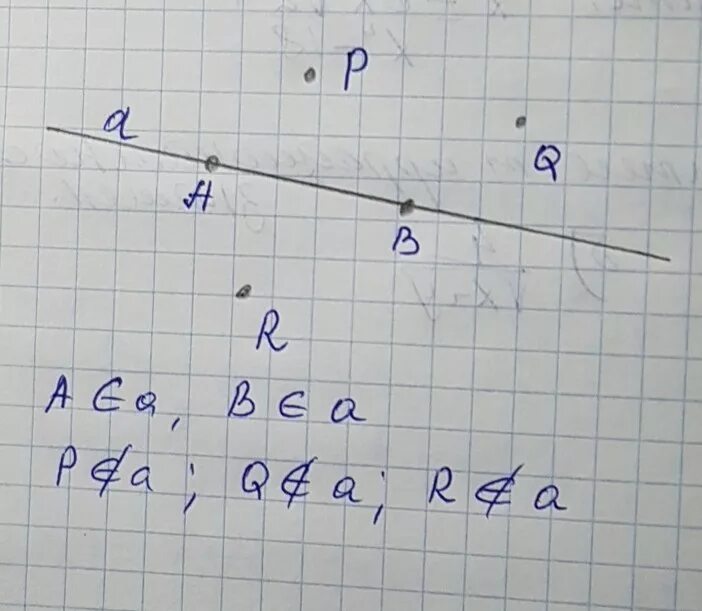 P
a
Q
A
B
R
A ∈ a, B ∈ a
P ∉ a; Q ∉ a; R ∉ a